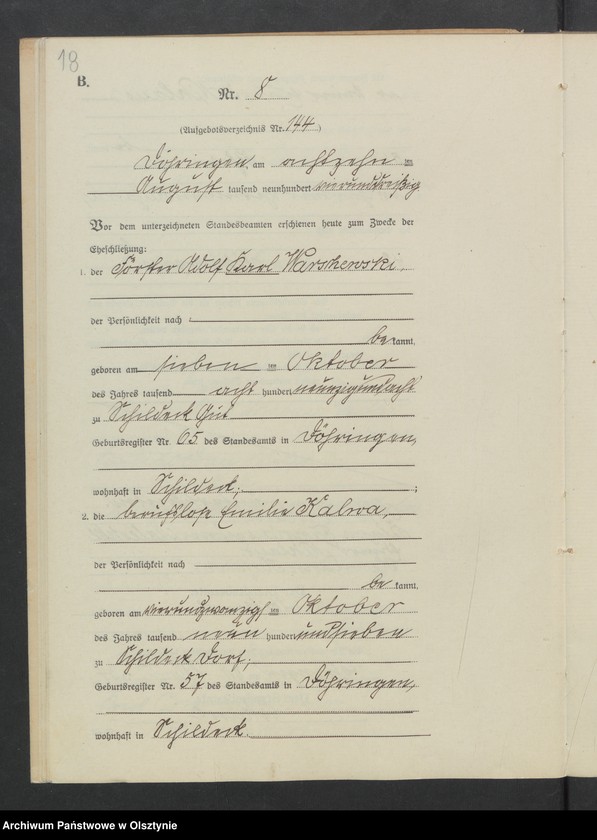 18
B.
Nr. 8
(Aufgebotsverzeichnis Nr. 144)
Döhringen, am achtzehn ten
August tausend neunhundert vierunddreißig
Vor dem unterzeichneten Standesbeamten erschienen heute zum Zwecke der
Eheschließung:
1. der Förster Adolf Karl Warschewski,
der Persönlichkeit nach
be kannt,
geboren am sieben ten Oktober
des Jahres tausend acht hundert neunzigundacht
zu Schildeck Gut
Geburtsregister Nr. 65 des Standesamts in Döhringen,
wohnhaft in Schildeck;
2. die berufslose Emilie Kalwa,
der Persönlichkeit nach
be kannt,
geboren am vierundzwanzig ten Oktober
des Jahres tausend neun hundert undsieben
zu Schildeck Dorf,
Geburtsregister Nr. 57 des Standesamts in Döhringen,
wohnhaft in Schildeck.
Archiwum Państwowe w Olsztynie